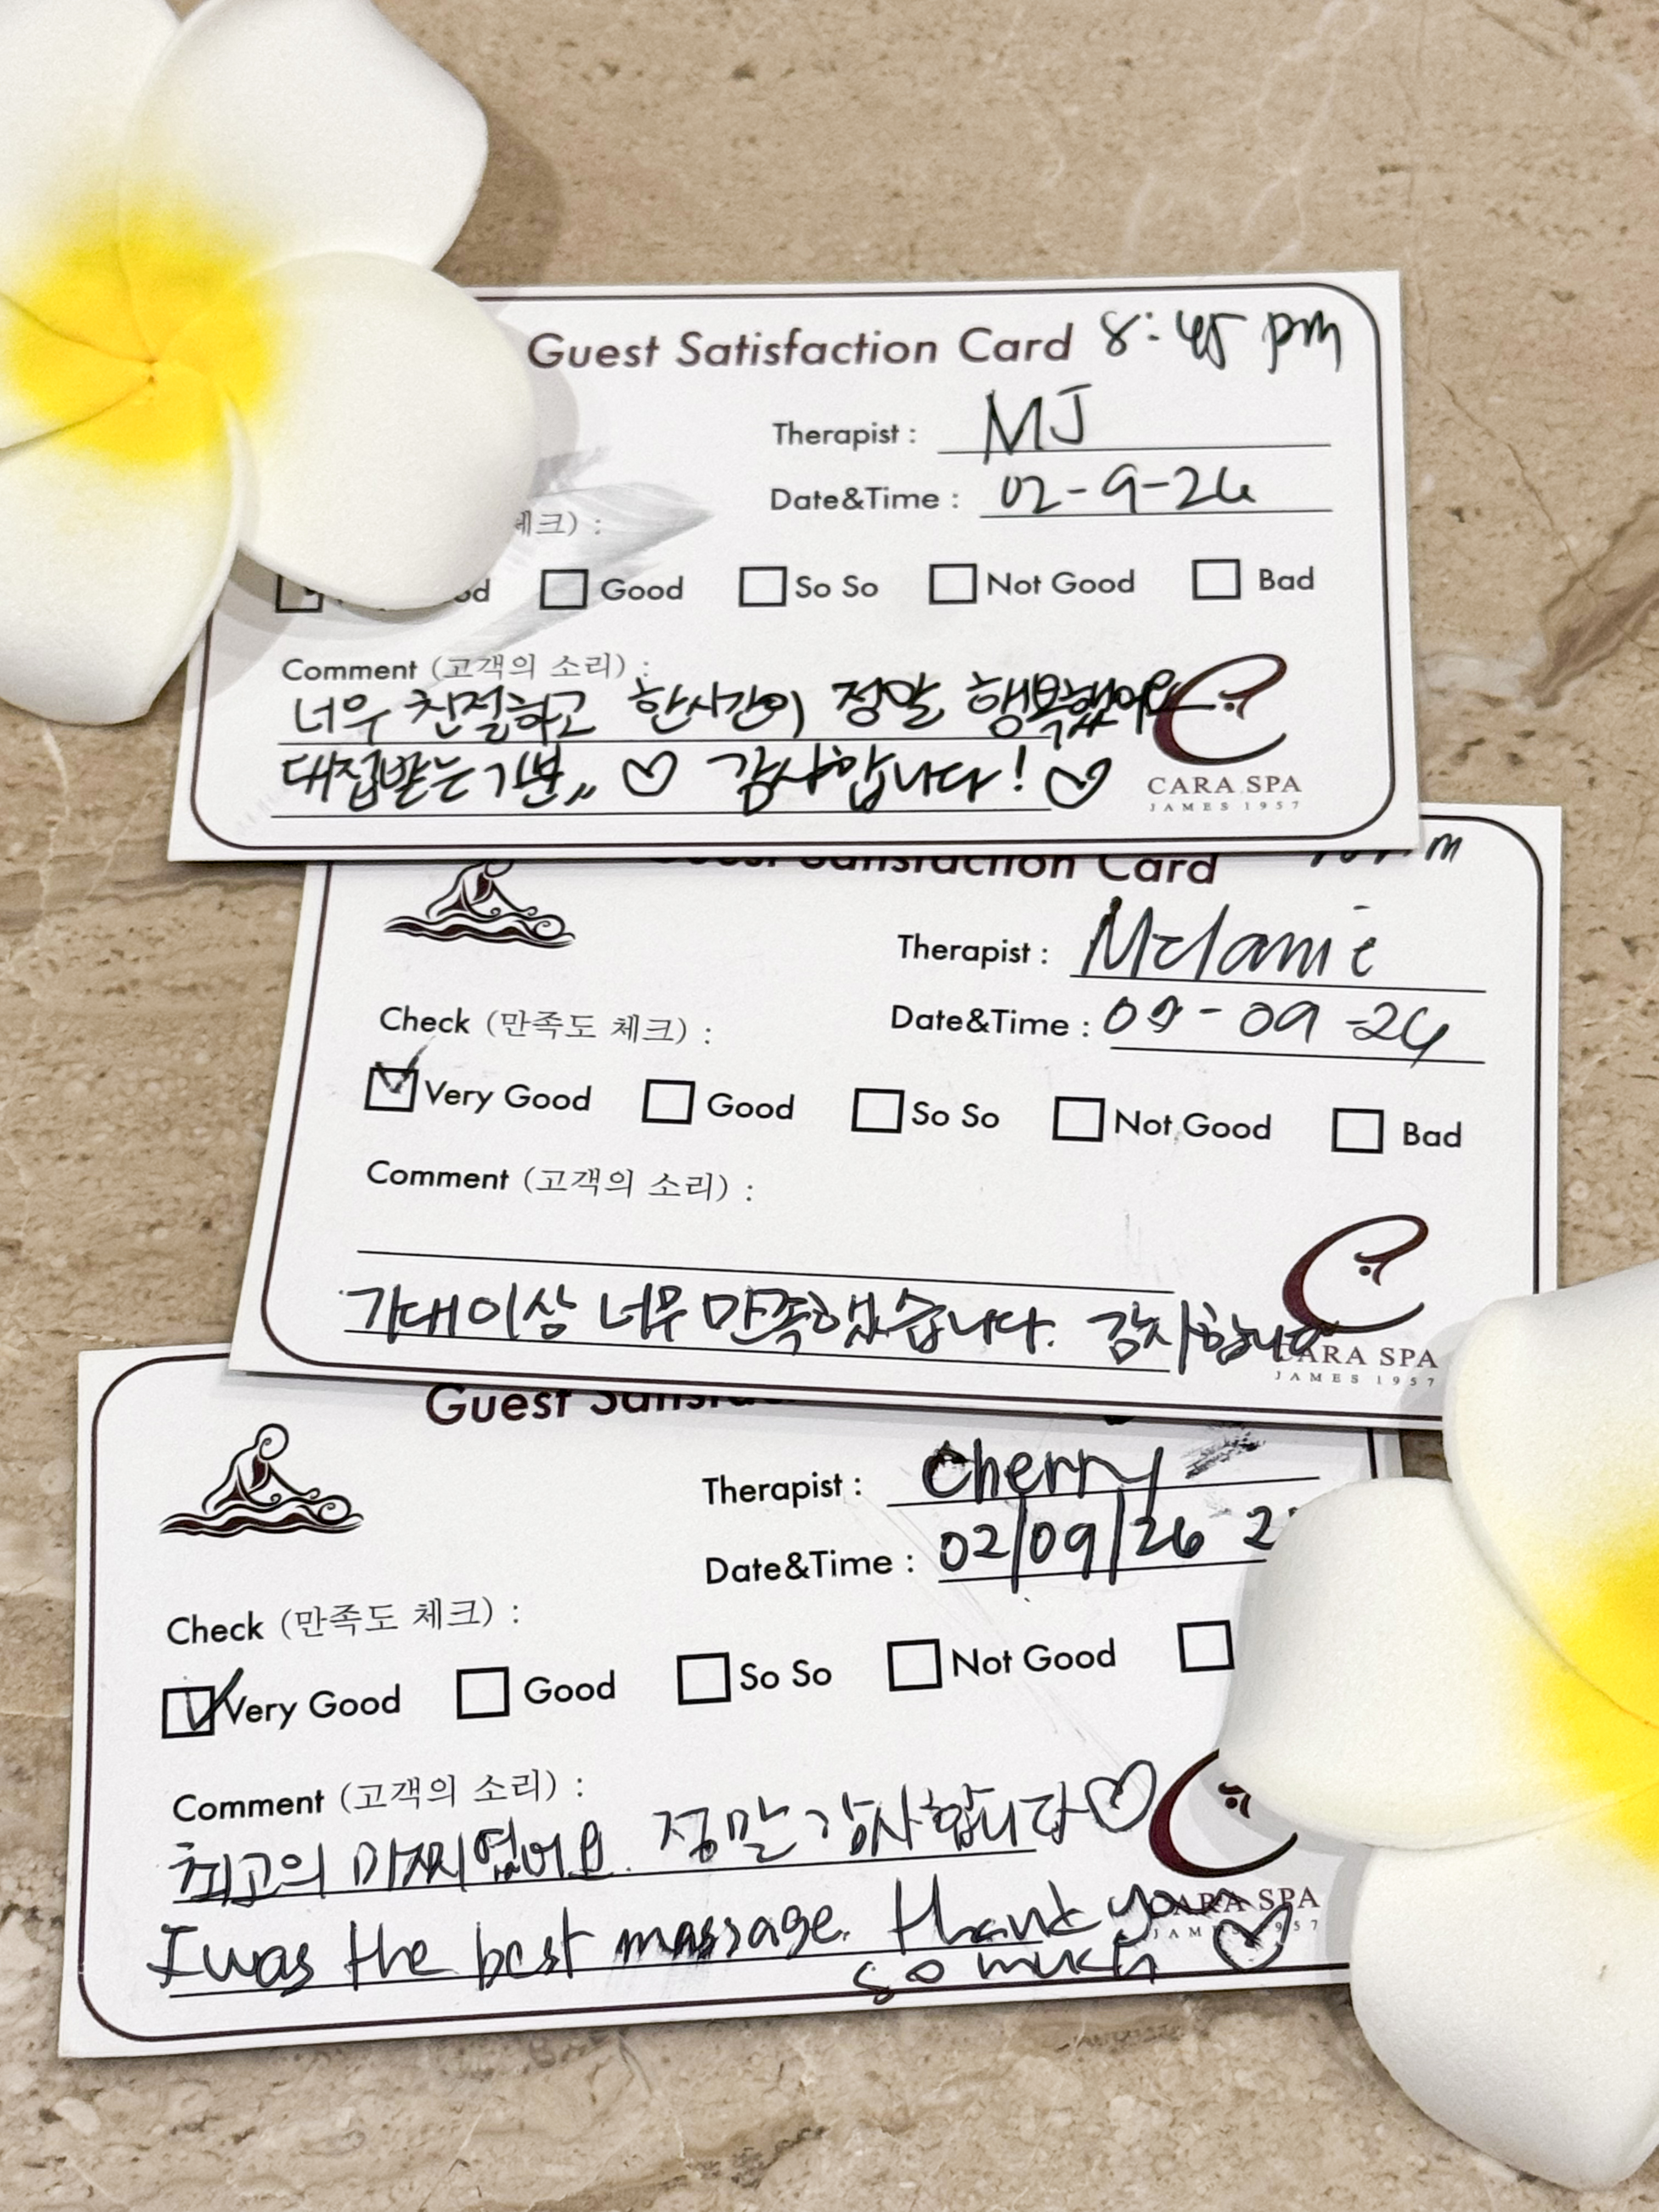 Guest Satisfaction Card 8:45 pm
Therapist : MJ
Date&Time : 02-9-26
체크) :
Good So So Not Good Bad
Comment (고객의 소리) :
너무 친절하고 한시간이 정말 행복했어요
대접받는 기분,, ♡ 감사합니다! ♡
CARA SPA
JAMES 1957
Guest Satisfaction Card
Therapist : Melanie
Date&Time : 02-09-26
Check (만족도 체크) :
Very Good Good So So Not Good Bad
Comment (고객의 소리) :
기대이상 너무 만족했습니다. 감사합니다
CARA SPA
JAMES 1957
Guest
Therapist : Cherry
Date&Time : 02/09/26 2
Check (만족도 체크) :
Very Good Good So So Not Good
Comment (고객의 소리) :
최고의 마찌였어요. 정말 감사합니다♡
I was the best massage. thank you
so much ♡
CARA SPA
JAMES 1957